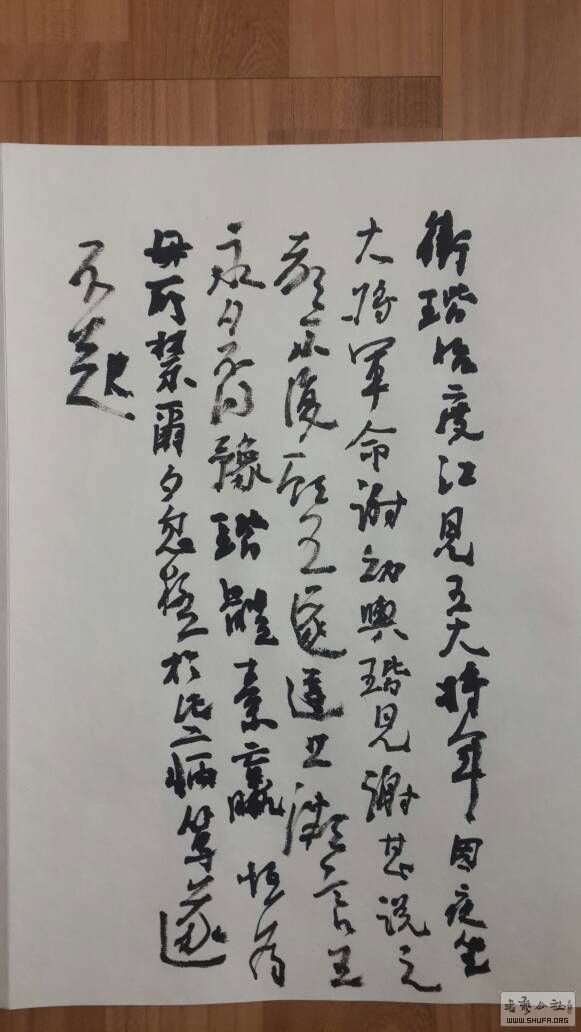 衛玠始度江見王大將軍因夜坐
大將軍命謝幼輿玠見謝甚說之
都不復顧王遂達旦微言王
永夕不得豫玠體素羸恒為
母所禁爾夕忽極於此病篤遂
不起
書藝公社
WWW.SHUFA.ORG